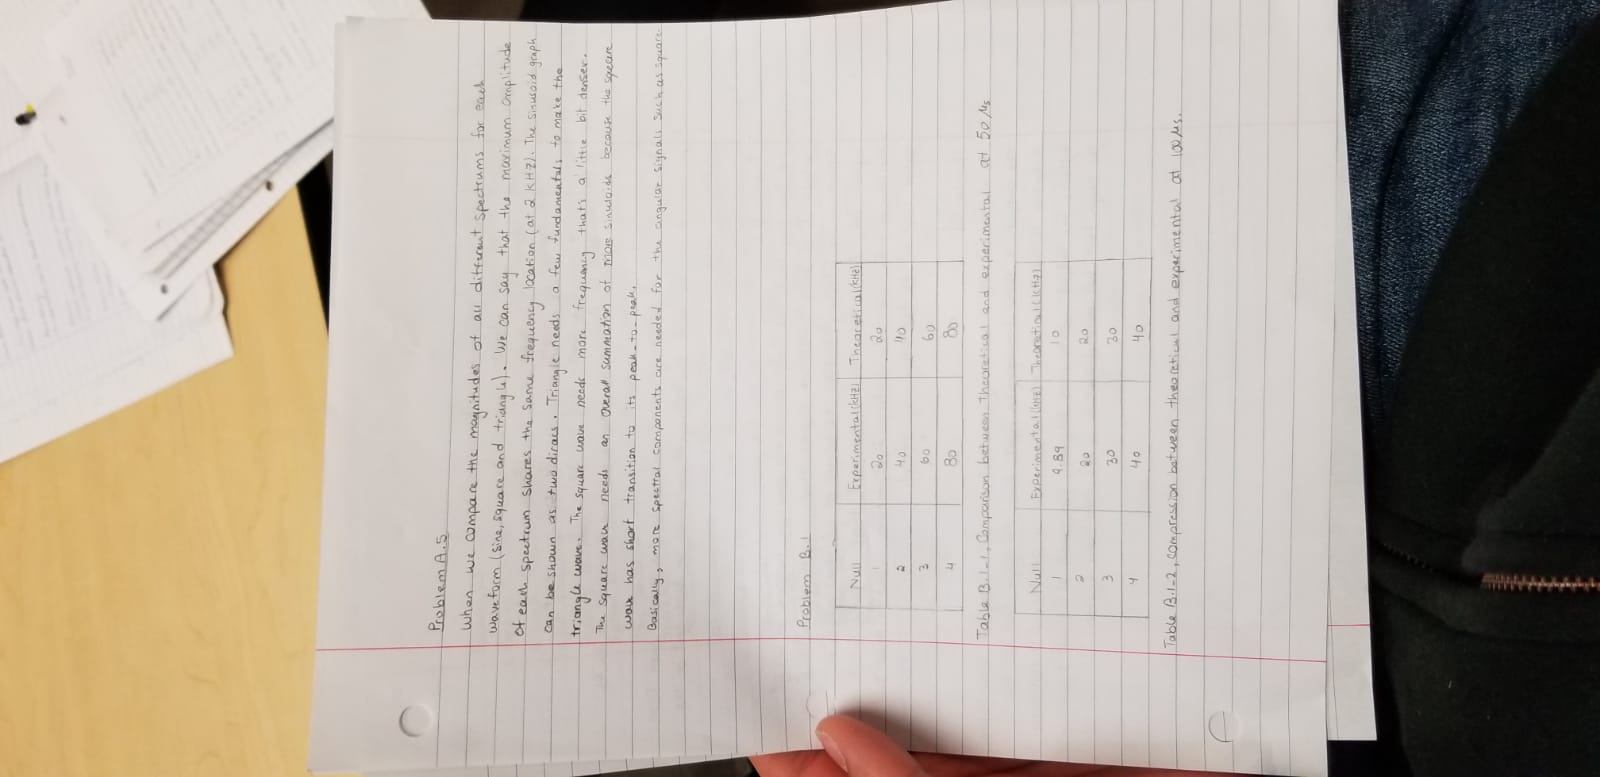 Problem A.5
When we compare the magnitudes of all different spectrums for each
waveform (sine, square and triangle). We can say that the maximum amplitude
of each spectrum shares the same frequency location (at 2 kHz). The sinusoid graph
can be shown as two diracs. Triangle needs a few fundamentals to make the
triangle wave. The square wave needs more frequency that's a little bit denser.
The square wave needs an overall summation of more sinusoids because the square
wave has short transition to its peak-to-peak.
Basically, more spectral components are needed for the angular signals such as square.
Problem B.1
Null Experimental (kHz) Theoretical (kHz)
1 20 20
2 40 40
3 60 60
4 80 80
Table B.1-1, Comparison between theoretical and experimental at 50 μs
Null Experimental (kHz) Theoretical (kHz)
1 9.89 10
2 20 20
3 30 30
4 40 40
Table B.1-2, compression between theoretical and experimental at 100 μs.